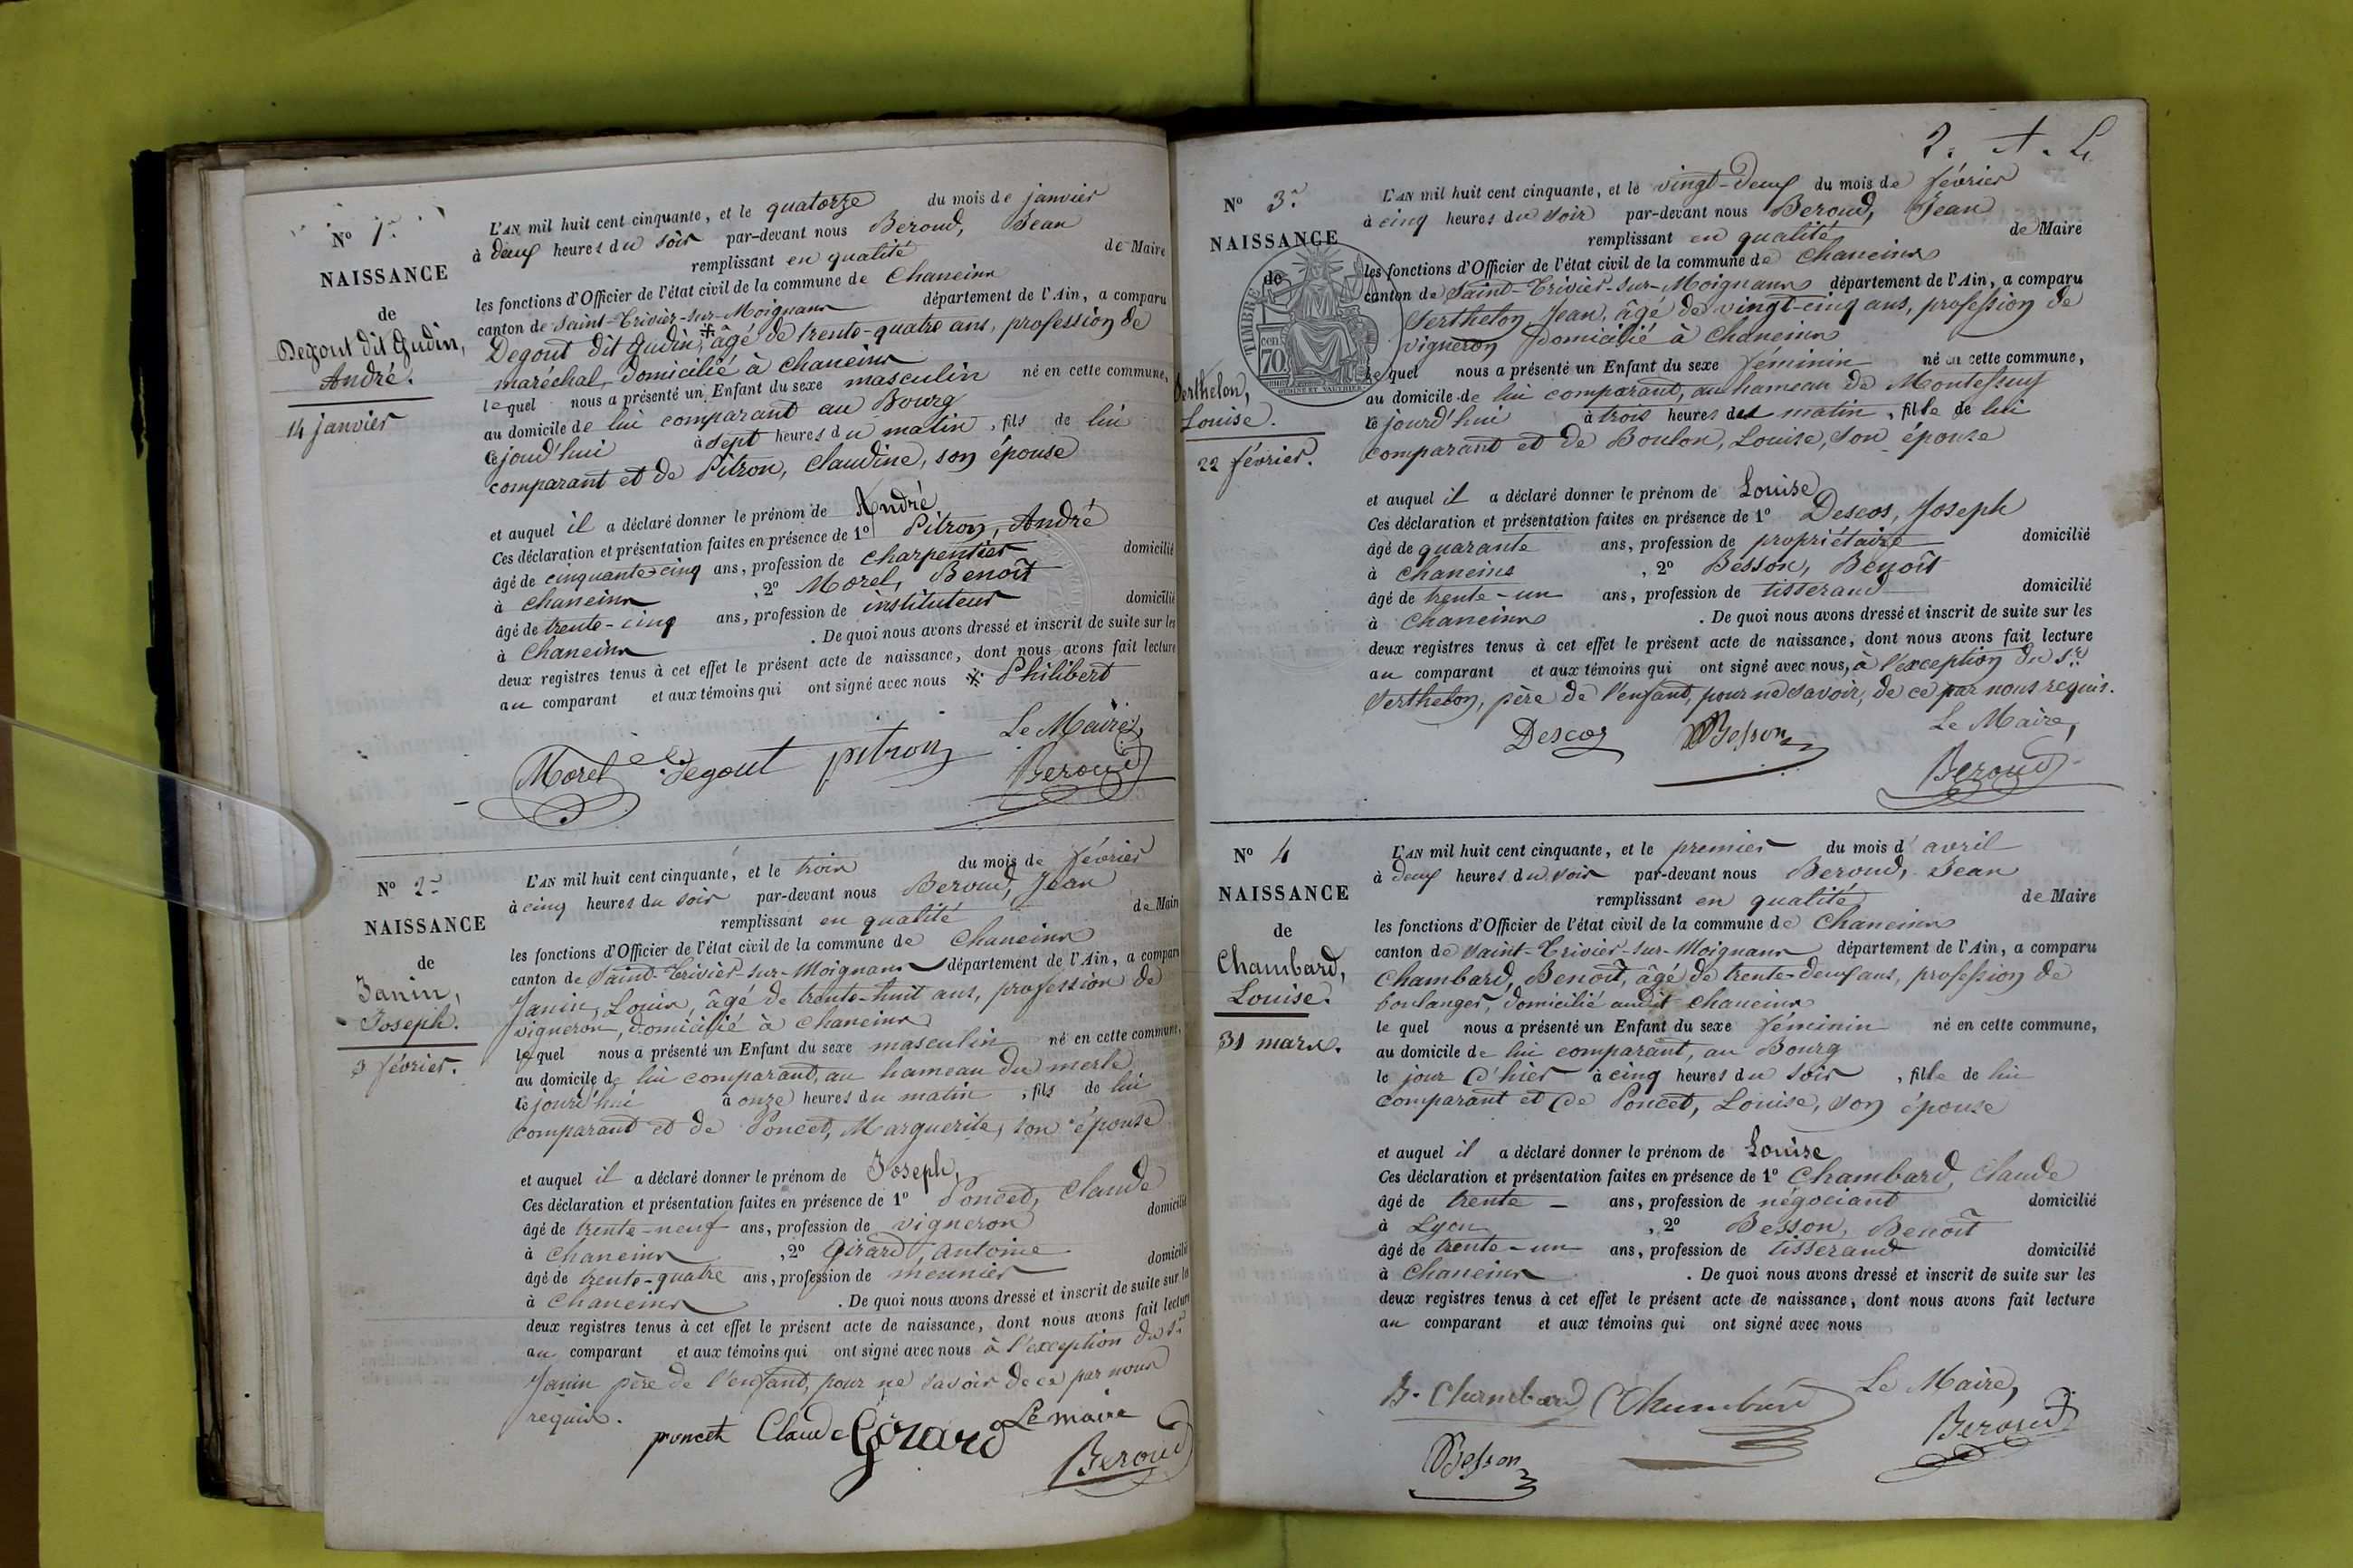 N° 1er
NAISSANCE
de
Degout dit Gudin,
André.
14 janvier
L'AN mil huit cent cinquante, et le quatorze du mois de janvier
à deux heures du soir par-devant nous Beroud, Jean
remplissant en qualité de Maire
les fonctions d'Officier de l'état civil de la commune de Chaneins
canton de Saint-Trivier-sur-Moignans département de l'Ain, a comparu
Degout dit Gudin, * âgé de trente-quatre ans, profession de
maréchal, domicilié à Chaneins
lequel nous a présenté un Enfant du sexe masculin né en cette commune,
au domicile de lui comparant au Bourg
cejourd'hui à sept heures du matin, fils de lui
comparant et de Pitron, Claudine, son épouse
et auquel il a déclaré donner le prénom de André
Ces déclaration et présentation faites en présence de 1° Pitron, André
âgé de cinquante-cinq ans, profession de charpentier domicilié
à Chaneins, 2° Morel, Benoît
âgé de trente-cinq ans, profession de instituteur domicilié
à Chaneins. De quoi nous avons dressé et inscrit de suite sur les
deux registres tenus à cet effet le présent acte de naissance, dont nous avons fait lecture
au comparant et aux témoins qui ont signé avec nous * Philibert
Le Maire,
Morel Degout pitron Beroud
N° 2
NAISSANCE
de
Janin,
Joseph.
3 février.
L'AN mil huit cent cinquante, et le trois du mois de février
à cinq heures du soir par-devant nous Beroud, Jean
remplissant en qualité de Maire
les fonctions d'Officier de l'état civil de la commune de Chaneins
canton de Saint-Trivier-sur-Moignans département de l'Ain, a comparu
Janin, Louis, âgé de trente-huit ans, profession de
vigneron, domicilié à Chaneins
lequel nous a présenté un Enfant du sexe masculin né en cette commune,
au domicile de lui comparant, au hameau du merle
cejourd'hui à onze heures du matin, fils de lui
comparant et de Poncet, Marguerite, son épouse
et auquel il a déclaré donner le prénom de Joseph,
Ces déclaration et présentation faites en présence de 1° Poncet, Claude
âgé de trente-neuf ans, profession de vigneron domicilié
à Chaneins, 2° Girard, Antoine
âgé de trente-quatre ans, profession de meunier domicilié
à Chaneins. De quoi nous avons dressé et inscrit de suite sur les
deux registres tenus à cet effet le présent acte de naissance, dont nous avons fait lecture
au comparant et aux témoins qui ont signé avec nous à l'exception du Sr
Janin père de l'enfant, pour ne savoir de ce par nous
requis.
poncet Claude Girard Le maire
Beroud
2.
N° 3
NAISSANCE
de
TIMBRE
70
Serthelon,
Louise.
22 février.
L'AN mil huit cent cinquante, et le vingt-deux du mois de février
à cinq heures du soir par-devant nous Beroud, Jean
remplissant en qualité de Maire
les fonctions d'Officier de l'état civil de la commune de Chaneins
canton de Saint-Trivier-sur-Moignans département de l'Ain, a comparu
Serthelon, Jean, âgé de vingt-cinq ans, profession de
vigneron domicilié à Chaneins
lequel nous a présenté un Enfant du sexe féminin né en cette commune,
au domicile de lui comparant, au hameau de Montesseuy
cejourd'hui à trois heures du matin, fille de lui
comparant et de Boulon, Louise, son épouse
et auquel il a déclaré donner le prénom de Louise
Ces déclaration et présentation faites en présence de 1° Descos, Joseph
âgé de quarante ans, profession de propriétaire domicilié
à Chaneins, 2° Besson, Benoît
âgé de trente-un ans, profession de tisserand domicilié
à Chaneins. De quoi nous avons dressé et inscrit de suite sur les
deux registres tenus à cet effet le présent acte de naissance, dont nous avons fait lecture
au comparant et aux témoins qui ont signé avec nous, à l'exception du Sr
Serthelon, père de l'enfant, pour ne savoir, de ce par nous requis.
Descos Besson Le Maire,
Beroud
N° 4
NAISSANCE
de
Chambard,
Louise.
31 mars.
L'AN mil huit cent cinquante, et le premier du mois d'avril
à deux heures du soir par-devant nous Beroud, Jean
remplissant en qualité de Maire
les fonctions d'Officier de l'état civil de la commune de Chaneins
canton de Saint-Trivier-sur-Moignans département de l'Ain, a comparu
Chambard, Benoît, âgé de trente-deux ans, profession de
boulanger, domicilié audit Chaneins
lequel nous a présenté un Enfant du sexe féminin né en cette commune,
au domicile de lui comparant, au Bourg
le jour d'hier à cinq heures du soir, fille de lui
comparant et de Poncet, Louise, son épouse
et auquel il a déclaré donner le prénom de Louise
Ces déclaration et présentation faites en présence de 1° Chambard, Claude
âgé de trente - ans, profession de négociant domicilié
à Lyon, 2° Besson, Benoît
âgé de trente-un ans, profession de tisserand domicilié
à Chaneins. De quoi nous avons dressé et inscrit de suite sur les
deux registres tenus à cet effet le présent acte de naissance, dont nous avons fait lecture
au comparant et aux témoins qui ont signé avec nous
B. Chambard Chambard Le Maire,
Besson Beroud